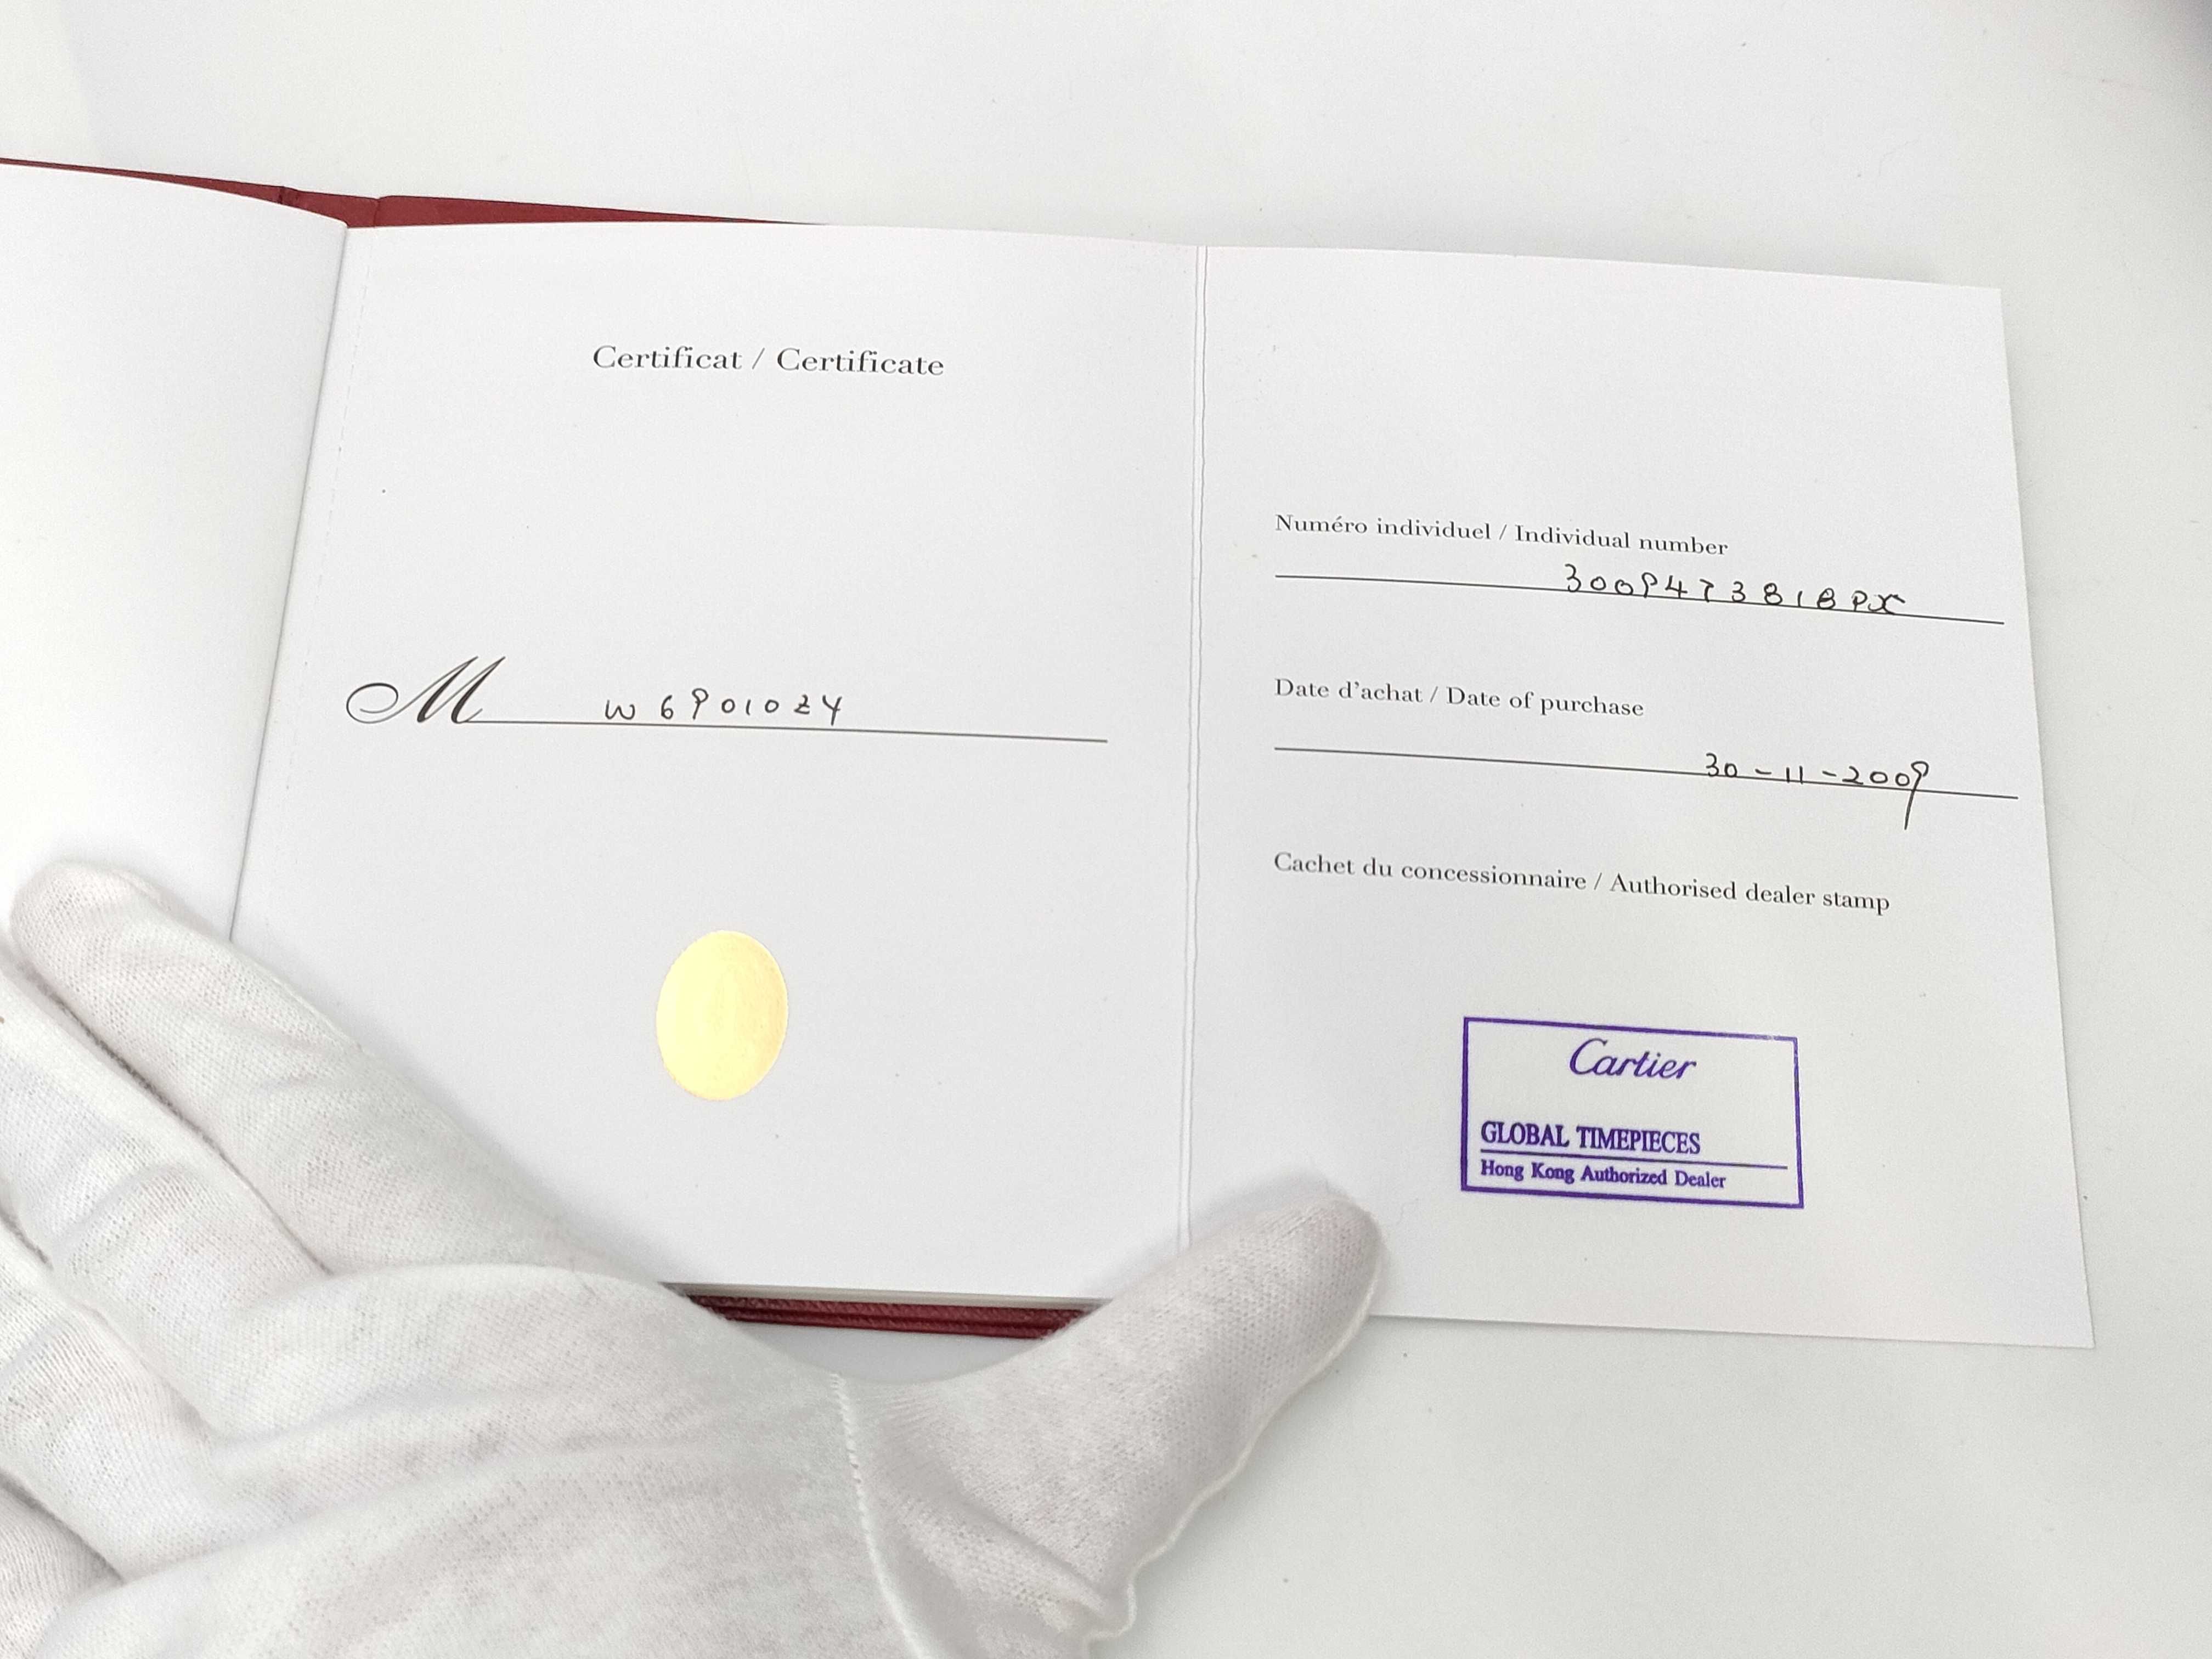 Certificat / Certificate
M W69010Z4
Numéro individuel / Individual number
3009473818PX
Date d'achat / Date of purchase
30-11-2009
Cachet du concessionnaire / Authorised dealer stamp
Cartier
GLOBAL TIMEPIECES
Hong Kong Authorized Dealer